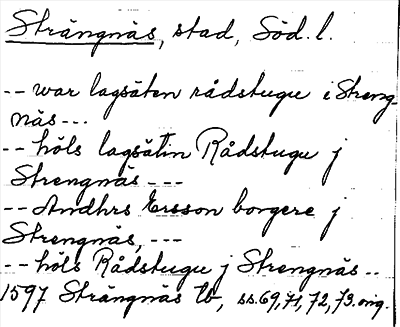 Strängnäs, stad, Söd. l.
-- war lagsäten rådstugu i Streng-
näs---
-- höls lagsätin Rådstugu j
Strengnäs ---
-- Andhrs Ersson borgere j
Strengnäs, ---
-- höls Rådstugu j Strengnäs --
1597 Strängnäs tb, ss. 69, 71, 72, 73. orig.